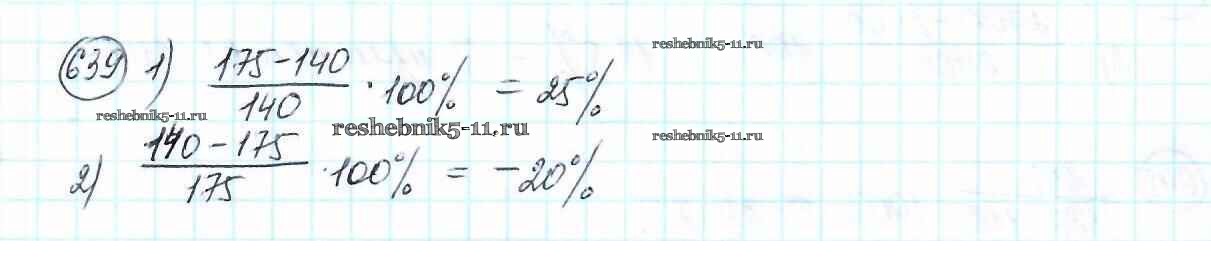 reshebnik5-11.ru
639 1) (175-140)/140 · 100% = 25%
reshebnik5-11.ru
reshebnik5-11.ru
reshebnik5-11.ru
2) (140-175)/175 · 100% = -20%